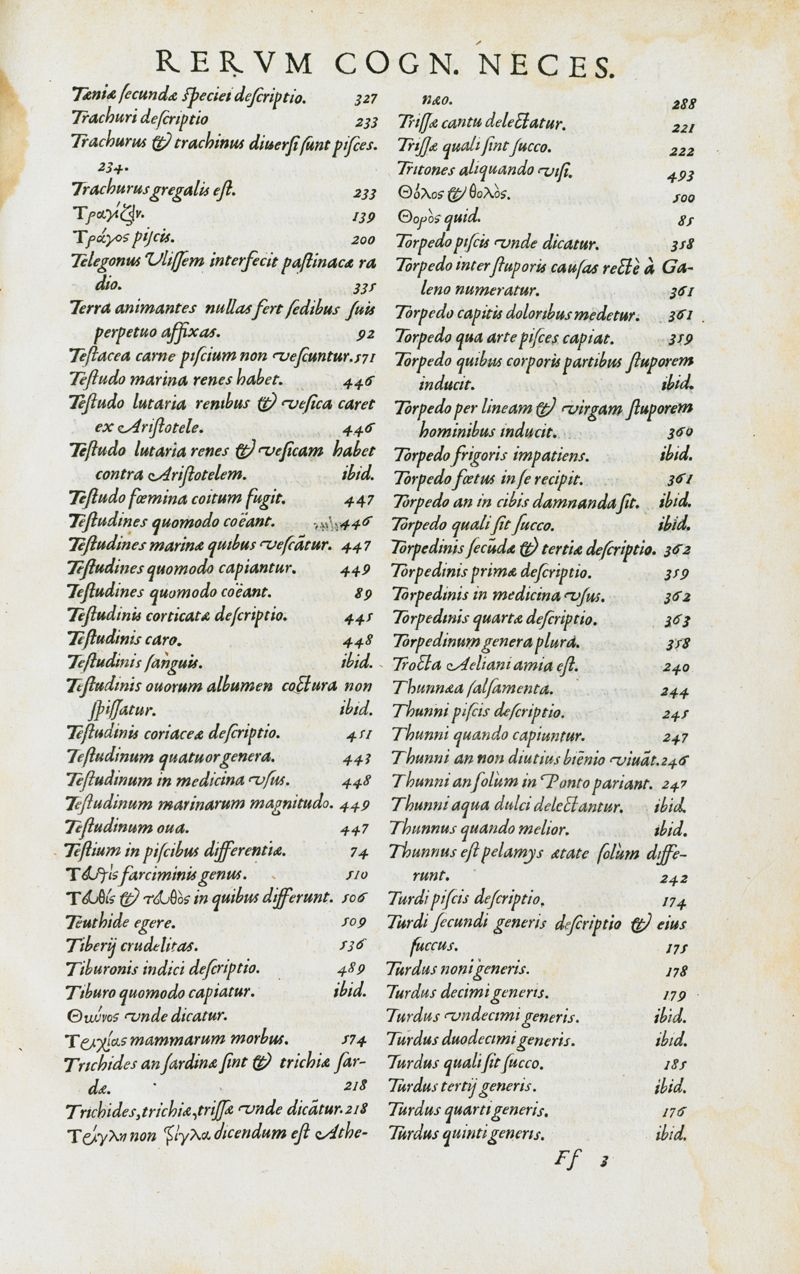 RERVM COGN. NECES.
Tæniæ ſecundæ ſpeciei deſcriptio. 327
Trachuri deſcriptio 233
Trachurus & trachinus diuerſi ſunt piſces.
234.
Trachurus gregalis eſt. 233
139
Τράγος piſcis. 200
Telegonus Vliſſem interfecit paſtinacæ ra
dio. 335
Terra animantes nullas fert ſedibus ſuis
perpetuo affixas. 92
Teſtacea carne piſcium non veſcuntur. 571
Teſtudo marina renes habet. 446
Teſtudo lutaria renibus & veſica caret
ex Ariſtotele. 446
Teſtudo lutaria renes & veſicam habet
contra Ariſtotelem. ibid.
Teſtudo fœmina coitum fugit. 447
Teſtudines quomodo coëant. 446
Teſtudines marinæ quibus veſcãtur. 447
Teſtudines quomodo capiantur. 449
Teſtudines quomodo coëant. 89
Teſtudinis corticatæ deſcriptio. 445
Teſtudinis caro. 448
Teſtudinis ſanguis. ibid.
Teſtudinis ouorum albumen coctura non
ſpiſſatur. ibid.
Teſtudinis coriaceæ deſcriptio. 451
Teſtudinum quatuor genera. 443
Teſtudinum in medicina vſus. 448
Teſtudinum marinarum magnitudo. 449
Teſtudinum oua. 447
Teſtium in piſcibus differentiæ. 74
Τευθὶς farciminis genus. 510
Τευθὶς & τευθὸς in quibus differunt. 506
Teuthide egere. 509
Tiberij crudelitas. 536
Tiburonis indici deſcriptio. 489
Tiburo quomodo capiatur. ibid.
Θύννος vnde dicatur.
Τριχίας mammarum morbus. 574
Trichides an ſardinæ ſint & trichiæ ſar-
dæ. 218
Trichides, trichiæ, triſſæ vnde dicãtur. 218
Τρίγλη non ζίγλα dicendum eſt Athe-
næo. 288
Triſſa cantu delectatur. 221
Triſſæ quali ſint ſucco. 222
Tritones aliquando viſi. 493
Θόλος & θολὸς. 500
Θορὸς quid. 85
Torpedo piſcis vnde dicatur. 358
Torpedo inter ſtuporis cauſas rectè à Ga-
leno numeratur. 361
Torpedo capitis doloribus medetur. 361
Torpedo qua arte piſces capiat. 359
Torpedo quibus corporis partibus ſtuporem
inducit. ibid.
Torpedo per lineam & virgam ſtuporem
hominibus inducit. 360
Torpedo frigoris impatiens. ibid.
Torpedo fœtus in ſe recipit. 361
Torpedo an in cibis damnanda ſit. ibid.
Torpedo quali ſit ſucco. ibid.
Torpedinis ſecũdæ & tertiæ deſcriptio. 362
Torpedinis primæ deſcriptio. 359
Torpedinis in medicina vſus. 362
Torpedinis quartæ deſcriptio. 363
Torpedinum genera plura. 358
Trocta Aeliani amia eſt. 240
Thunnæa ſalſamenta. 244
Thunni piſcis deſcriptio. 245
Thunni quando capiuntur. 247
Thunni an non diutius biẽnio viuãt. 246
Thunni an ſolùm in Ponto pariant. 247
Thunni aqua dulci delectantur. ibid.
Thunnus quando melior. ibid.
Thunnus eſt pelamys ætate ſolùm diffe-
runt. 242
Turdi piſcis deſcriptio. 174
Turdi ſecundi generis deſcriptio & eius
ſuccus. 175
Turdus noni generis. 178
Turdus decimi generis. 179
Turdus vndecimi generis. ibid.
Turdus duodecimi generis. ibid.
Turdus quali ſit ſucco. 185
Turdus tertij generis. ibid.
Turdus quarti generis. 176
Turdus quinti generis. ibid.
Ff 3